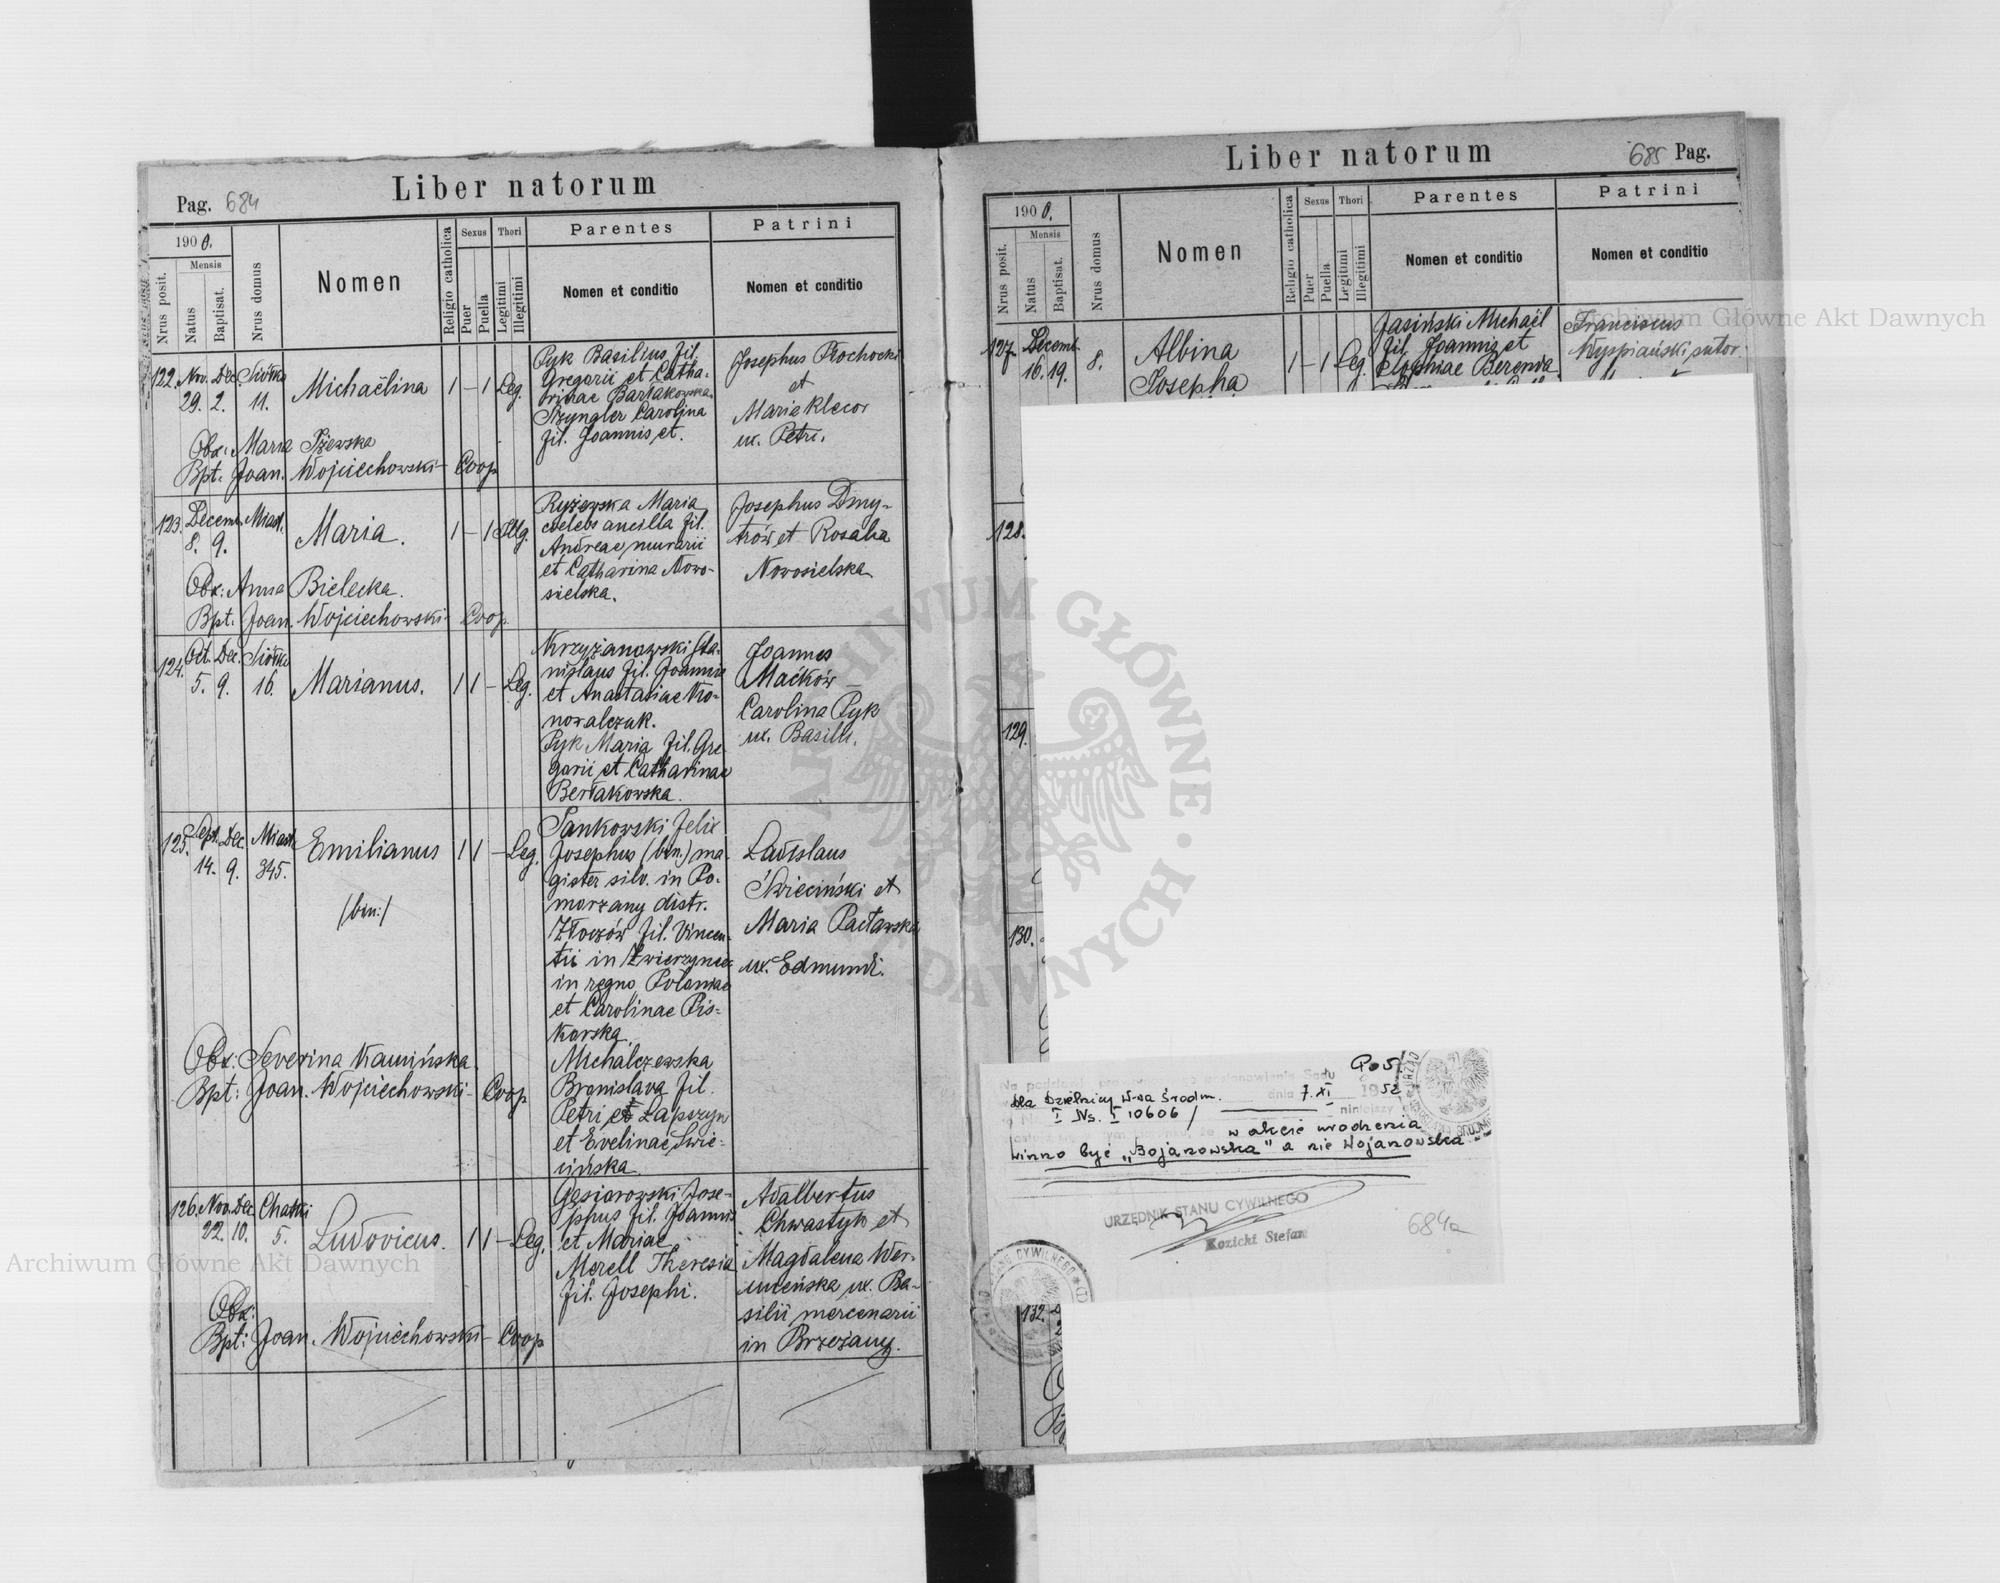 Pag. 684
Liber natorum
1900.
Nrus posit.
Mensis
Natus
Baptisat.
Nrus domus
Nomen
Religio catholica
Sexus
Puer
Puella
Thori
Legitimi
Illegitimi
Parentes
Nomen et conditio
Patrini
Nomen et conditio
122. Nov. Dec.
29. 2. 11.
Michaëlina 1 – 1 Leg.
Pyk Basilius fil.
Gregorii et Catha-
rinae
Szyngler Carolina
fil. Joannis et.
Josephus Prochocki
et
Maria Klecor
ux. Petri.
Obx: Maria
Bpt: Joan. Wojciechowski Coop
123. Decem. Miast.
8. 9.
Maria. 1 – 1 Illg.
Ryżewska Maria
coelebs ancilla fil.
Andreae murarii
et Catharina Nowo-
sielska.
Josephus Dmy-
trów et Rosalia
Nowosielska
Obx: Anna Bielecka.
Bpt: Joan. Wojciechowski Coop
124. Oct. Dec.
5. 9. 16.
Marianus. 1 1 – Leg.
Krzyżanowski Sta-
nislaus fil. Joannis
et Anastasiae Ko-
nowalczuk.
Pyk Maria fil. Gre-
gorii et Catharinae
Bertakowska.
Joannes
Maćków
Carolina Pyk
ux. Basilii.
125. Sept. Dec. Miast.
14. 9. 345.
Emilianus 1 1 – Leg.
/bin:/
Jankowski Felix
Josephus (bin.) ma-
gister silv. in Po-
morzany distr.
Złoczów fil. Vincen-
tii in Zwierzyniec
in regno Poloniae
et Carolinae Pis-
karska.
Michalczewska
Bronislava fil.
Petri et Łapszyn
et Evelinae Świe-
cińska.
Ladislaus
Świeciński et
Maria Pacławska
ux. Edmundi.
Obx: Severina Kamińska.
Bpt: Joan. Wojciechowski Coop
126. Nov. Dec. Chatki
22. 10. 5.
Ludovicus. 1 1 – Leg.
Gąsiorowski Jose-
phus fil. Joannis
et Mariae
Merell Theresia
fil. Josephi.
Adalbertus
Chwastyk et
Magdalena Wer-
mińska ux. Ba-
silii mercenarii
in Brzeżany.
Obx:
Bpt: Joan. Wojciechowski Coop
Liber natorum
685 Pag.
1900.
Nrus posit.
Mensis
Natus
Baptisat.
Nrus domus
Nomen
Religio catholica
Sexus
Puer
Puella
Thori
Legitimi
Illegitimi
Parentes
Nomen et conditio
Patrini
Nomen et conditio
127. Decemb.
16. 19. 8.
Albina
Josepha
1 – 1 Leg.
Jasiński Michaël
fil. Joannis et
Zophiae Berenda
Franciscus
Wyspiański sutor.
128.
129.
130.
132.
postanowienia Sądu
dla Dzielnicy W-wa Śródm. dnia 7.XI 1952
I Ns. I 10606/ niniejszy
w akcie urodzenia
winno być „Bojanowska" a nie Wojanowska
URZĘDNIK STANU CYWILNEGO
Kozicki Stefan
684a
Archiwum Główne Akt Dawnych
Archiwum Główne Akt Dawnych
ARCHIWUM GŁÓWNE AKT DAWNYCH